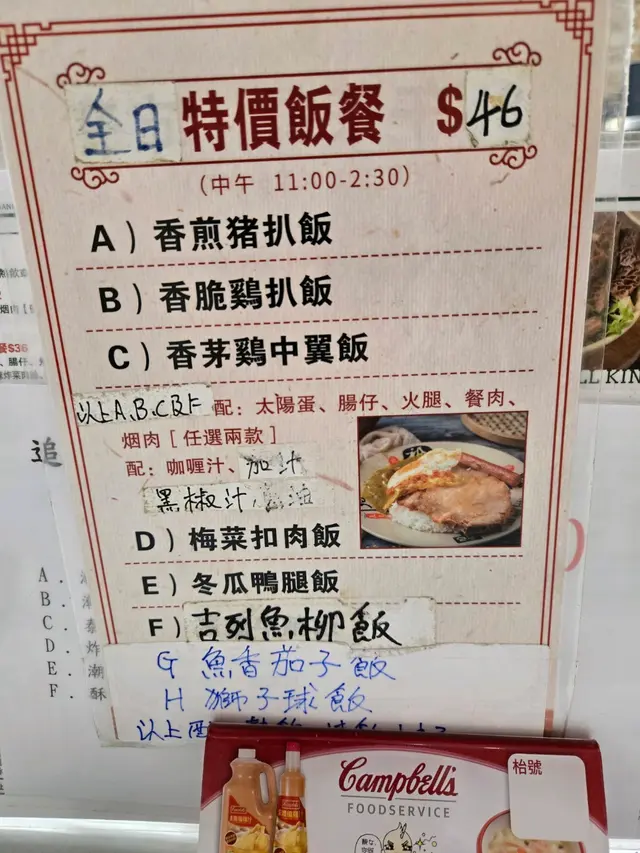 全日 特價飯餐 $46
(中午 11:00-2:30)
A) 香煎猪扒飯
B) 香脆鷄扒飯
C) 香茅鷄中翼飯
以上A、B、C及F 配: 太陽蛋、腸仔、火腿、餐肉、
烟肉 [任選兩款]
配: 咖喱汁、加汁
黑椒汁
D) 梅菜扣肉飯
E) 冬瓜鴨腿飯
F) 吉列魚柳飯
G 魚香茄子飯
H 獅子球飯
以上
追
A.
B.
C.
D. 炸
E. 潮
F. 酥
Campbell's
FOODSERVICE
枱號